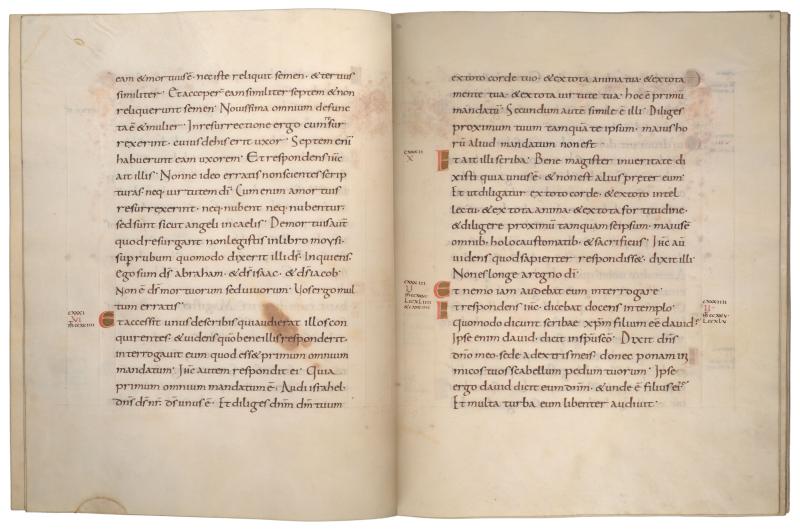 eam & mortuus ē. nec iste reliquit semen. & tertius
similiter. Et acceper̄ eam similiter septem & non
reliquerunt semen. Nouissima omnium defunc
ta ē & mulier. In resurrectione ergo cum resur
rexerint. cuius de his erit uxor. Septem eni
habuerunt eam uxorem. Et respondens ihc
ait illis. Nonne ideo erratis non scientes scrip
turas. neq. uirtutem dī. Cum enim a mortuis
resurrexerint. neq. nubent neq. nubentur.
sed sunt sicut angeli in caelis. De mortuis aut̄
quod resurgant non legistis in libro moysi.
super rubum quomodo dixerit illi ds̄. Inquiens.
ego sum ds̄ abraham. & ds̄ isaac. & ds̄ iacob.
Non ē ds̄ mortuorum sed uiuorum. Uos ergo mul
tum erratis.
Et accessit unus de scribis qui audierat illos con
quirentes & uidens quō bene illis responderit.
interrogauit eum quod ess& primum omnium
mandatum. Ihc autem respondit ei. Quia
primum omnium mandatum ē. Audi israhel.
dn̄s ds̄ nr̄. ds̄ unus ē. Et diliges dn̄m dm̄ tuum
ex toto corde tuo. & ex tota anima tua. & ex tota
mente tua. & ex tota uirtute tua. hoc ē primū
mandatū. Secundum autē simile ē illi. Diliges
proximum tuum tamquā te ipsum. maius ho
rū aliud mandatum non est.
CXXXII
X
Et ait illi scriba. Bene magister in ueritate di
xisti quia unus ē. & non est alius preter eum.
Et ut diligatur ex toto corde. & ex toto intel
lectu. & ex tota anima. & ex tota fortitudine.
& diligere proximū tamquam se ipsum. maius ē
omnib. holocaustomatib. & sacrificiis. Ihc aū
uidens quod sapienter respondiss&. dixit illi.
Non es longe a regno dī.
Et nemo iam audebat eum interrogare.
Et respondens ihc. dicebat docens in templo.
quomodo dicunt scribae xp̄m filium eē dauid.
Ipse enim dauid. dicit in sp̄u scō. Dixit dn̄s
dn̄o meo. sede a dextris meis donec ponam in
micos tuos scabellum pedum tuorum. Ipse
ergo dauid dicit eum dn̄m. & unde ē filius eius.
Et multa turba eum libenter audiuit.